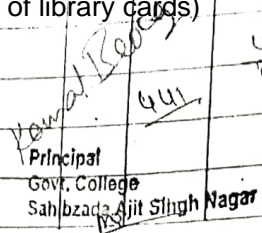 of library cards)
441
Principal
Govt. College
Sahibzada Ajit Singh Nagar